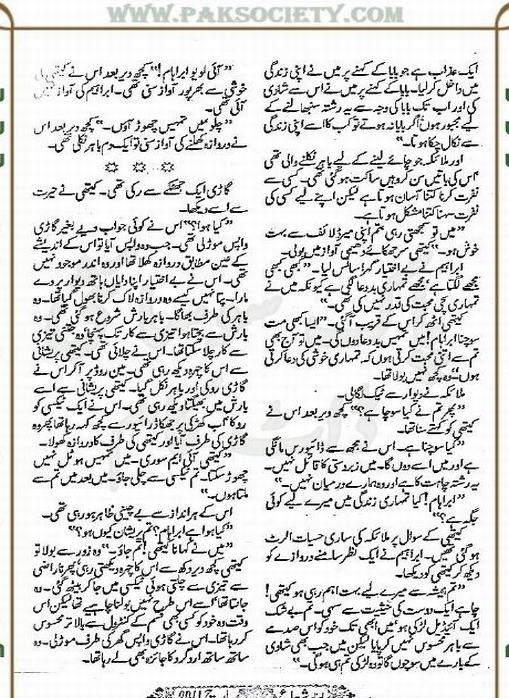 WWW.PAKSOCIETY.COM
ایک عذاب ہے جو پاپا کے کہنے پر میں نے اپنی زندگی
میں داخل کر لیا۔ پاپا کے کہنے پر میں نے اس سے شادی
کی اور اب تک پاپا کی وجہ سے یہ رشتہ سنبھالنے کے
لیے مجبور ہوں اگر پاپا نہ ہوتے تو کب کا اسے اپنی زندگی
سے نکال چکا ہوتا۔"
اور ملائکہ جو چائے لینے کے لیے باہر نکلنے والی تھی
اس کی باتیں سن کر وہیں ساکت ہو گئی تھی۔ کسی سے
نفرت کرنا کتنا آسان ہوتا ہے لیکن اپنے لیے کسی کی
نفرت سہنا کتنا مشکل ہوتا ہے۔
"میں تو سمجھتی رہی تم اپنی میرڈ لائف سے بہت
خوش ہو۔" کیتھی سر جھکائے دھیمی آواز میں بولی۔
ابراہیم نے بے اختیار گہرا سانس لیا۔ "کبھی کبھی
مجھے لگتا ہے مجھے تمہاری بددعا لگی ہے کیونکہ میں نے
تمہاری سچی محبت کی قدر نہیں کی تھی۔"
کیتھی اٹھ کر اس کے قریب آ گئی۔ "ایسا کبھی مت
سوچنا ابراہام! میں تمہیں بددعا دوں گی۔ میں تو آج بھی
تم سے اتنی محبت کرتی ہوں کہ تمہاری خوشی کی دعا کرتی
ہوں۔" وہ کچھ نہیں بولا تھا۔
ملائکہ نے دیوار سے ٹیک لگا لی۔
"پھر تم نے کیا سوچا ہے؟" کچھ دیر بعد اس نے
کیتھی کو کہتے سنا تھا۔
"کیا سوچنا ہے۔ اس نے مجھ سے ڈائیورس مانگی
ہے اور میں اسے دوں گا۔ میں زبردستی کا قائل نہیں۔
یہ رشتہ چاہت کا ہے اور وہ ہمارے درمیان نہیں۔"
"ابراہام! کیا تمہاری زندگی میں میرے لیے کوئی
جگہ ہے؟"
کیتھی کے سوال پر ملائکہ کی ساری حسیات الرٹ
ہو گئی تھیں۔ ابراہیم نے ایک نظر سامنے دروازے کو
دیکھ کر کیتھی کو دیکھا۔
"تم ہمیشہ سے میرے لیے بہت اہم رہی ہو کیتھی!
چاہے ایک دوست کی حیثیت سے سہی۔ تم بے شک
ایک آئیڈیل لڑکی ہو میں ابھی تک خود کو اس صدمے
سے باہر محسوس نہیں کر پایا لیکن میں جب بھی شادی
کے بارے میں سوچوں گا تو وہ لڑکی تم ہی ہو گی۔"
"آئی لو یو ابراہام!" کچھ دیر بعد اس نے کیتھی کی
خوشی سے بھرپور آواز سنی تھی۔ ابراہیم کی آواز نہیں
آئی تھی۔
"چلو میں تمہیں چھوڑ آؤں۔" کچھ دیر بعد اس
نے دروازہ کھلنے کی آواز سنی تو ایک دم باہر نکلی تھی۔
گاڑی ایک جھٹکے سے رکی تھی۔ کیتھی نے حیرت
سے اسے دیکھا۔
"کیا ہوا؟" اس نے کوئی جواب دیے بغیر گاڑی
واپس موڑلی تھی۔ جب وہ واپس آیا تو اس کے اندیشے
کے عین مطابق دروازہ کھلا تھا اور وہ اندر موجود نہیں
تھی۔ اس نے بے اختیار اپنا دایاں ہاتھ دیوار پر دے
مارا۔ پتا نہیں کیسے وہ دروازہ لاک کرنا بھول گیا تھا۔ وہ
باہر کی طرف بھاگا۔ باہر بارش شروع ہو گئی تھی۔ وہ
بارش سے بچتا ہوا تیزی سے کار تک پہنچا وہ جتنی تیزی
سے کار چلا سکتا تھا۔ اس نے چلائی تھی۔ کیتھی پریشانی
سے اس کا چہرہ دیکھ رہی تھی۔ مین روڈ پر آ کر اس نے
گاڑی روکی اور باہر نکل گیا۔ کیتھی پریشانی سے اسے
بارش میں بھیگتا دیکھ رہی تھی۔ اس نے ایک ٹیکسی کو
روکا اب کھڑکی پر جھکا ڈرائیور سے کچھ کہہ رہا تھا پھر وہ
گاڑی کی طرف آیا اور کیتھی کی طرف کا دروازہ کھولا۔
"کیتھی آئی ایم سوری۔ میں تمہیں ہوٹل نہیں
چھوڑ سکتا۔ تم ٹیکسی سے چلی جاؤ۔ میں بعد میں تم سے
ملتا ہوں۔"
اس کے ہر انداز سے بے چینی ظاہر ہو رہی تھی۔
"کیا ہوا ہے ابراہام؟ تم پریشان کیوں ہو؟"
"میں نے کہا نا کیتھی! تم جاؤ۔" وہ زور سے بولا تو
کیتھی کچھ دیر دکھ سے اس کا چہرہ دیکھتی رہی پھر ناراضی
سے تیزی سے چلتی ہوئی ٹیکسی میں جا کر بیٹھ گئی۔ وہ
جانتا تھا اسے اس طرح نہیں بولنا چاہیے تھا لیکن اس
وقت وہ خود کو کسی بھی قسم کے کنٹرول سے باہر محسوس
کر رہا تھا۔ اس نے گاڑی واپس گھر کی طرف موڑلی۔ وہ
ساتھ ساتھ ارد گرد کا جائزہ بھی لے رہا تھا۔